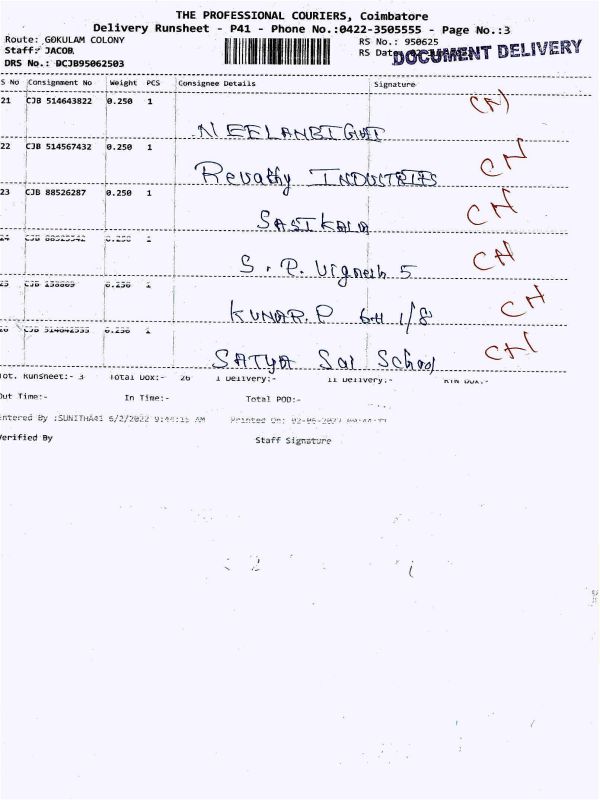 THE PROFESSIONAL COURIERS, Coimbatore
Delivery Runsheet - P41 - Phone No.:0422-3505555 - Page No.:3
Route: GOKULAM COLONY RS No.: 950625
Staff: JACOB RS Date
DOCUMENT DELIVERY
DRS No.: DCJB95062503
S No Consignment No Weight PCS Consignee Details Signature
21 CJB 514643822 0.250 1 CN
22 CJB 514567432 0.250 1 Revathy INDUSTRIES CN
23 CJB 88526287 0.250 1 SASIKALA CN
24 CJB 0.250 1 S.P. Vignesh 5 CN
25 CJB 0.250 1 KUMAR.P 6H 1/8 CN
26 CJB 0.250 1 SATYA Sai School CN
Tot. Runsheet:- 3 Total Dox:- 26 I Delivery:- II Delivery:- RTN Dox:-
Out Time:- In Time:- Total POD:-
Entered By :SUNITHA41 6/2/2022 9:44:15 AM Printed On:
Verified By Staff Signature